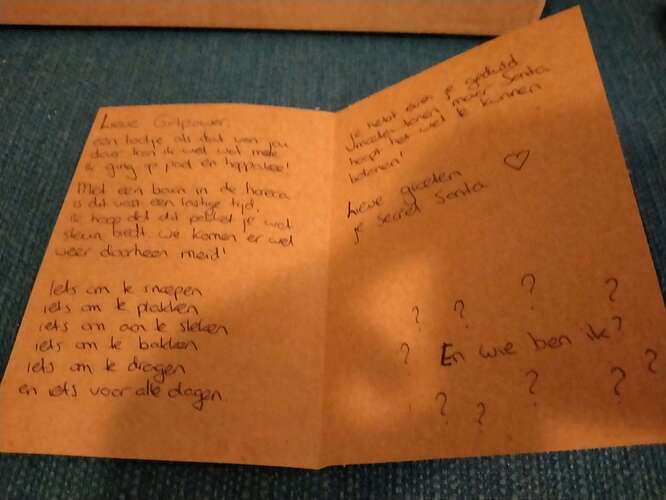 Lieve Girlpower,
een lootje als dat van jou
daar kan ik wel wat mee
ik ging op pad en hoppakee!
Met een baan in de horeca
is dit vast een lastige tijd,
ik hoop dat dit pakket je wat
steun biedt. We komen er wel
weer doorheen meid!
Iets om te snoepen
iets om te plakken
iets om aan te steken
iets om te bakken
iets om te dragen
en iets voor alle dagen.
Je hebt even je geduld
moeten tonen maar Santa
hoopt het wel te kunnen
belonen!
Lieve groeten
je secret Santa ♡
? ? ? ?
? En wie ben ik? ?
? ? ? ?